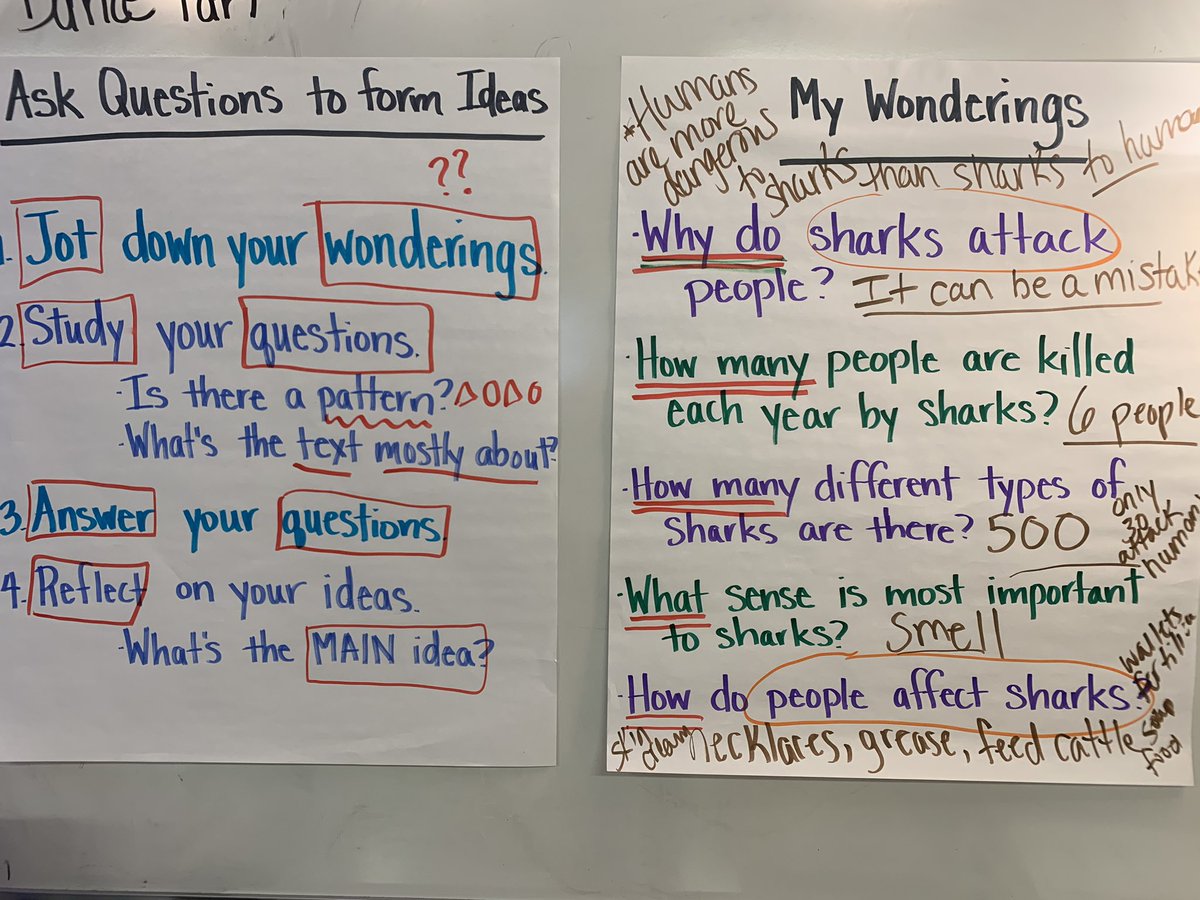 Ask Questions to form Ideas
??
1. Jot down your wonderings.
2. Study your questions.
·Is there a pattern?
·What's the text mostly about?
3. Answer your questions.
4. Reflect on your ideas.
·What's the MAIN idea?
My Wonderings
*Humans
are more
dangerous
to sharks than sharks to human
·Why do sharks attack
people? It can be a mistak
·How many people are killed
each year by sharks? 6 people
·How many different types of
sharks are there? 500
only
30
attack
humans
·What sense is most important
to sharks? Smell
·How do people affect sharks?
wallets
fertilizer
soup
food
skin cream necklaces, grease, feed cattle